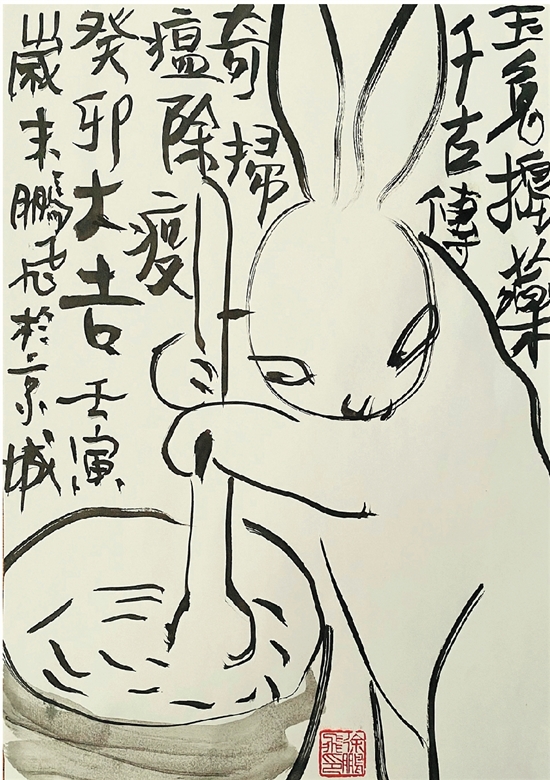 玉兔搗藥
千古傳
奇掃
瘟除疫
癸卯大吉壬寅
歲末鵬飛於京城
徐鵬飛印